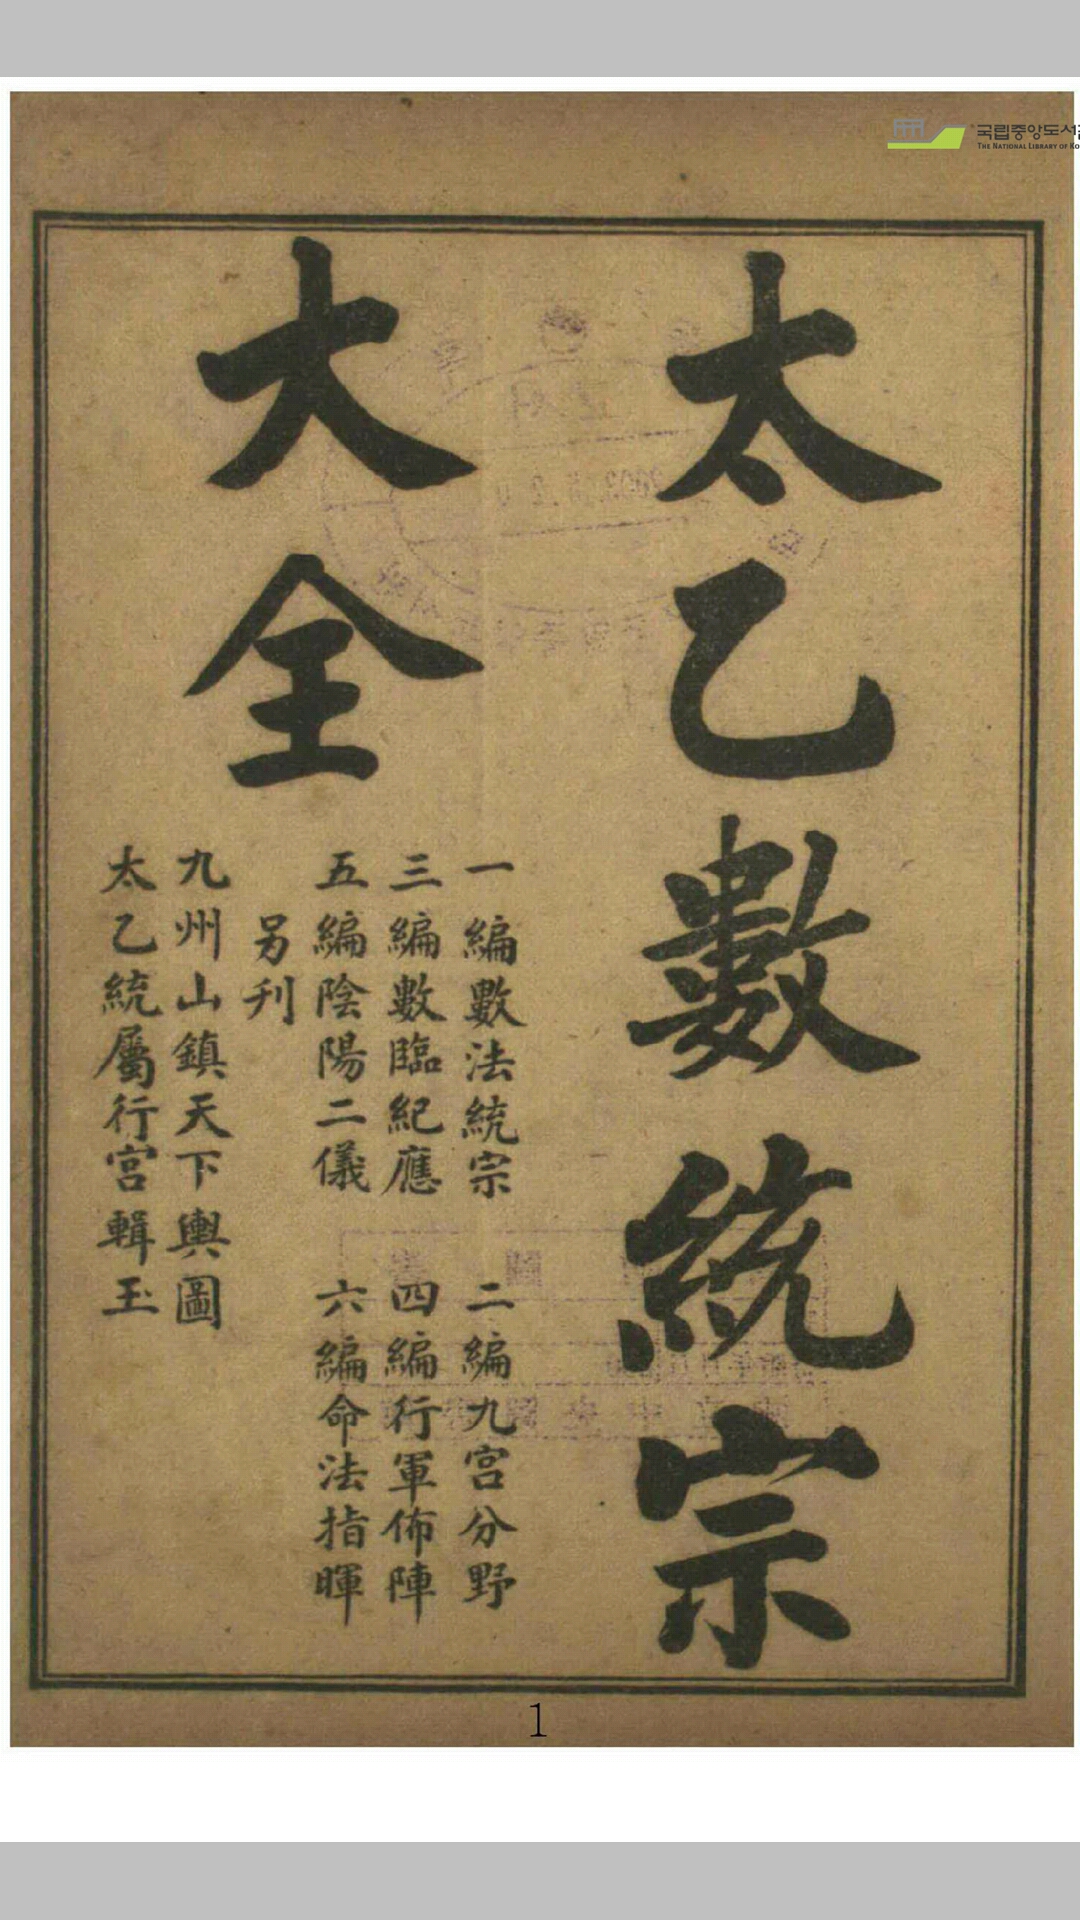 국립중앙도서관
THE NATIONAL LIBRARY OF KO
太乙數統宗
大全
一編數法統宗 二編九宮分野
三編數臨紀應 四編行軍佈陣
五編陰陽二儀 六編命法指暉
另刋
九州山鎮天下輿圖
太乙統屬行宮輯玉
1